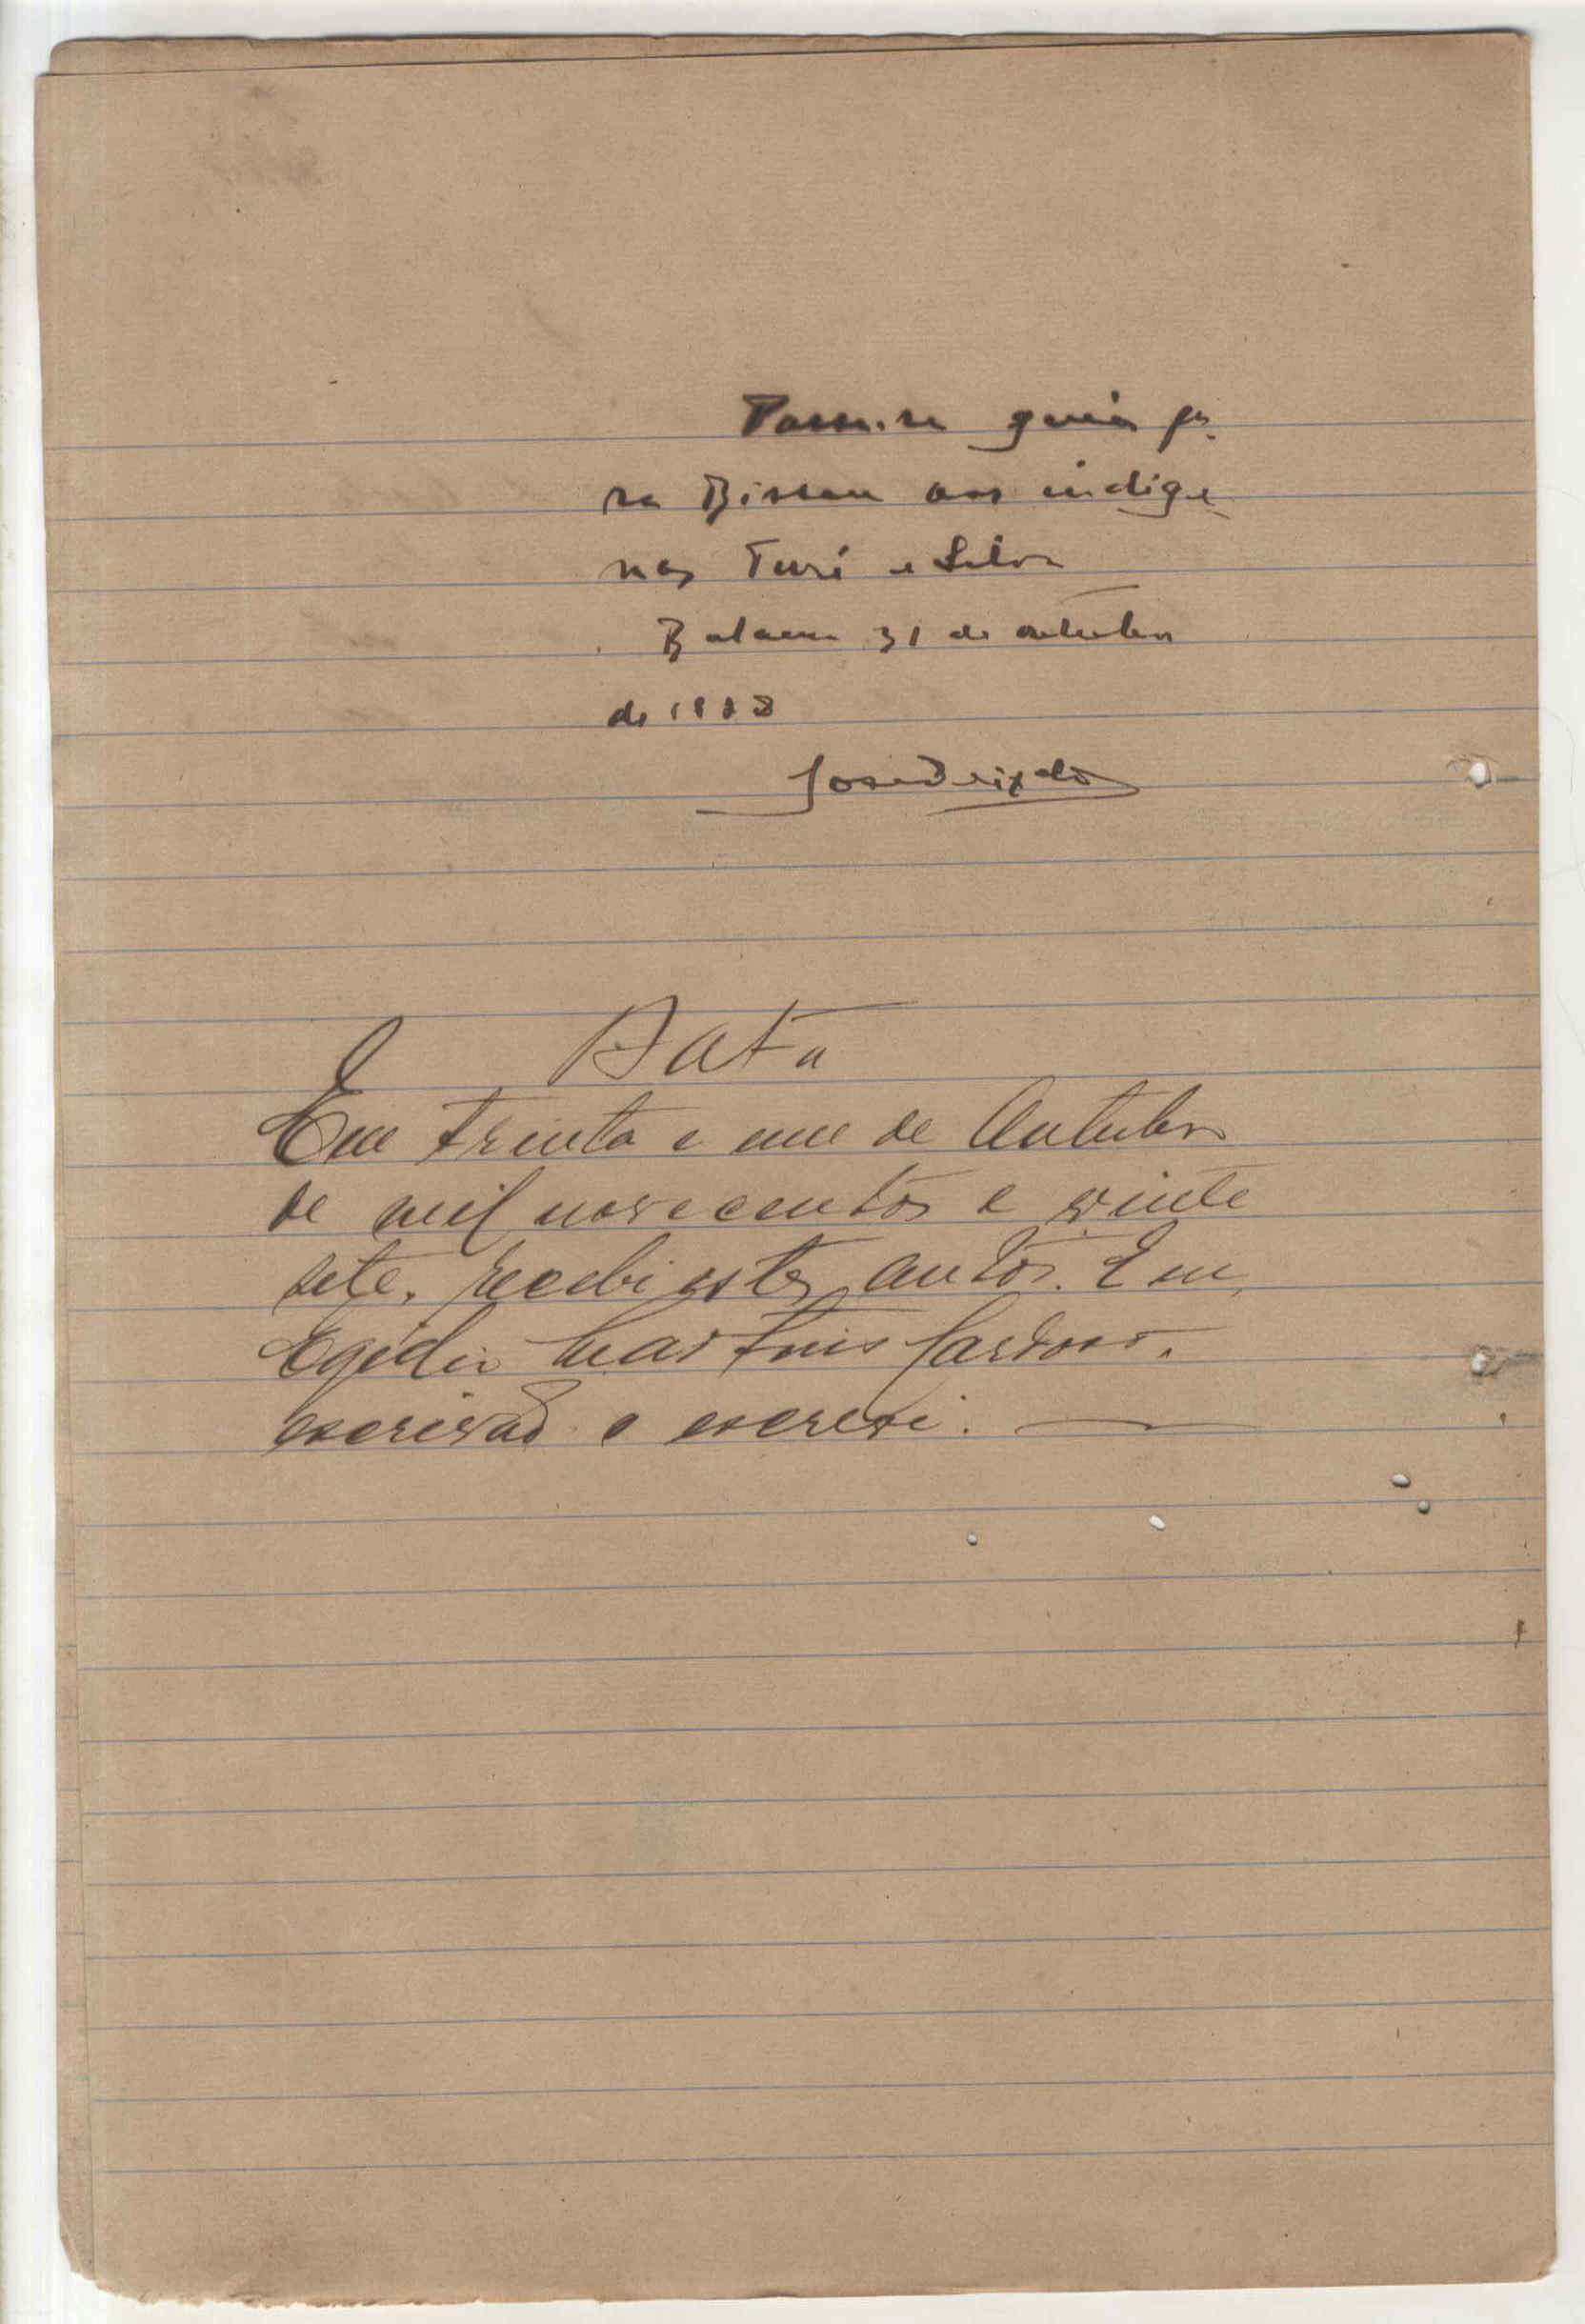 Passe-se guia pa-
ra Bissau aos indige-
nas Turé e
Bafatá 31 de outubro
de 1928
José Peixoto
Data
Em trinta e um de Outubro
de mil novecentos e vinte
sete, recebi estes autos. Eu,
Egidio Martins Cardoso,
escrivão o escrevi.